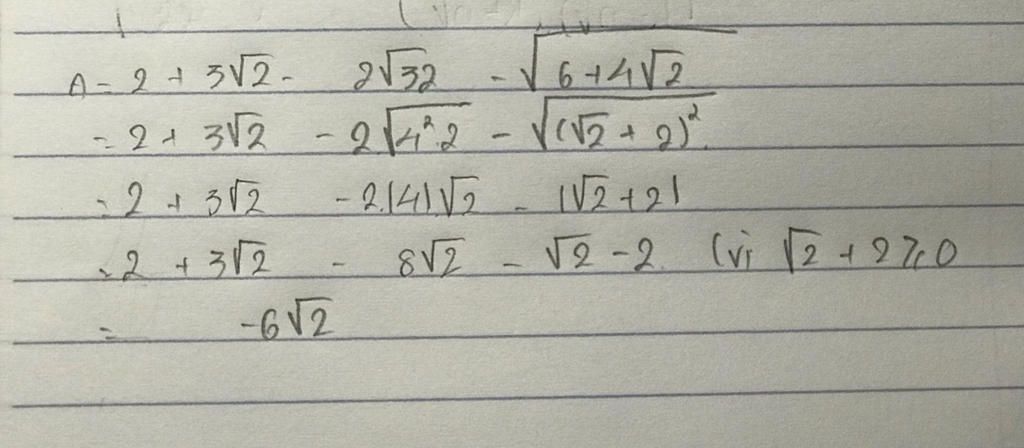 A = 2 + 3√2 - 2√32 - √(6+4√2)
= 2 + 3√2 - 2√(4².2) - √((√2 + 2)²)
= 2 + 3√2 - 2.|4|√2 - |√2+2|
= 2 + 3√2 - 8√2 - √2 - 2. (vì √2 + 2 ≥ 0
= -6√2